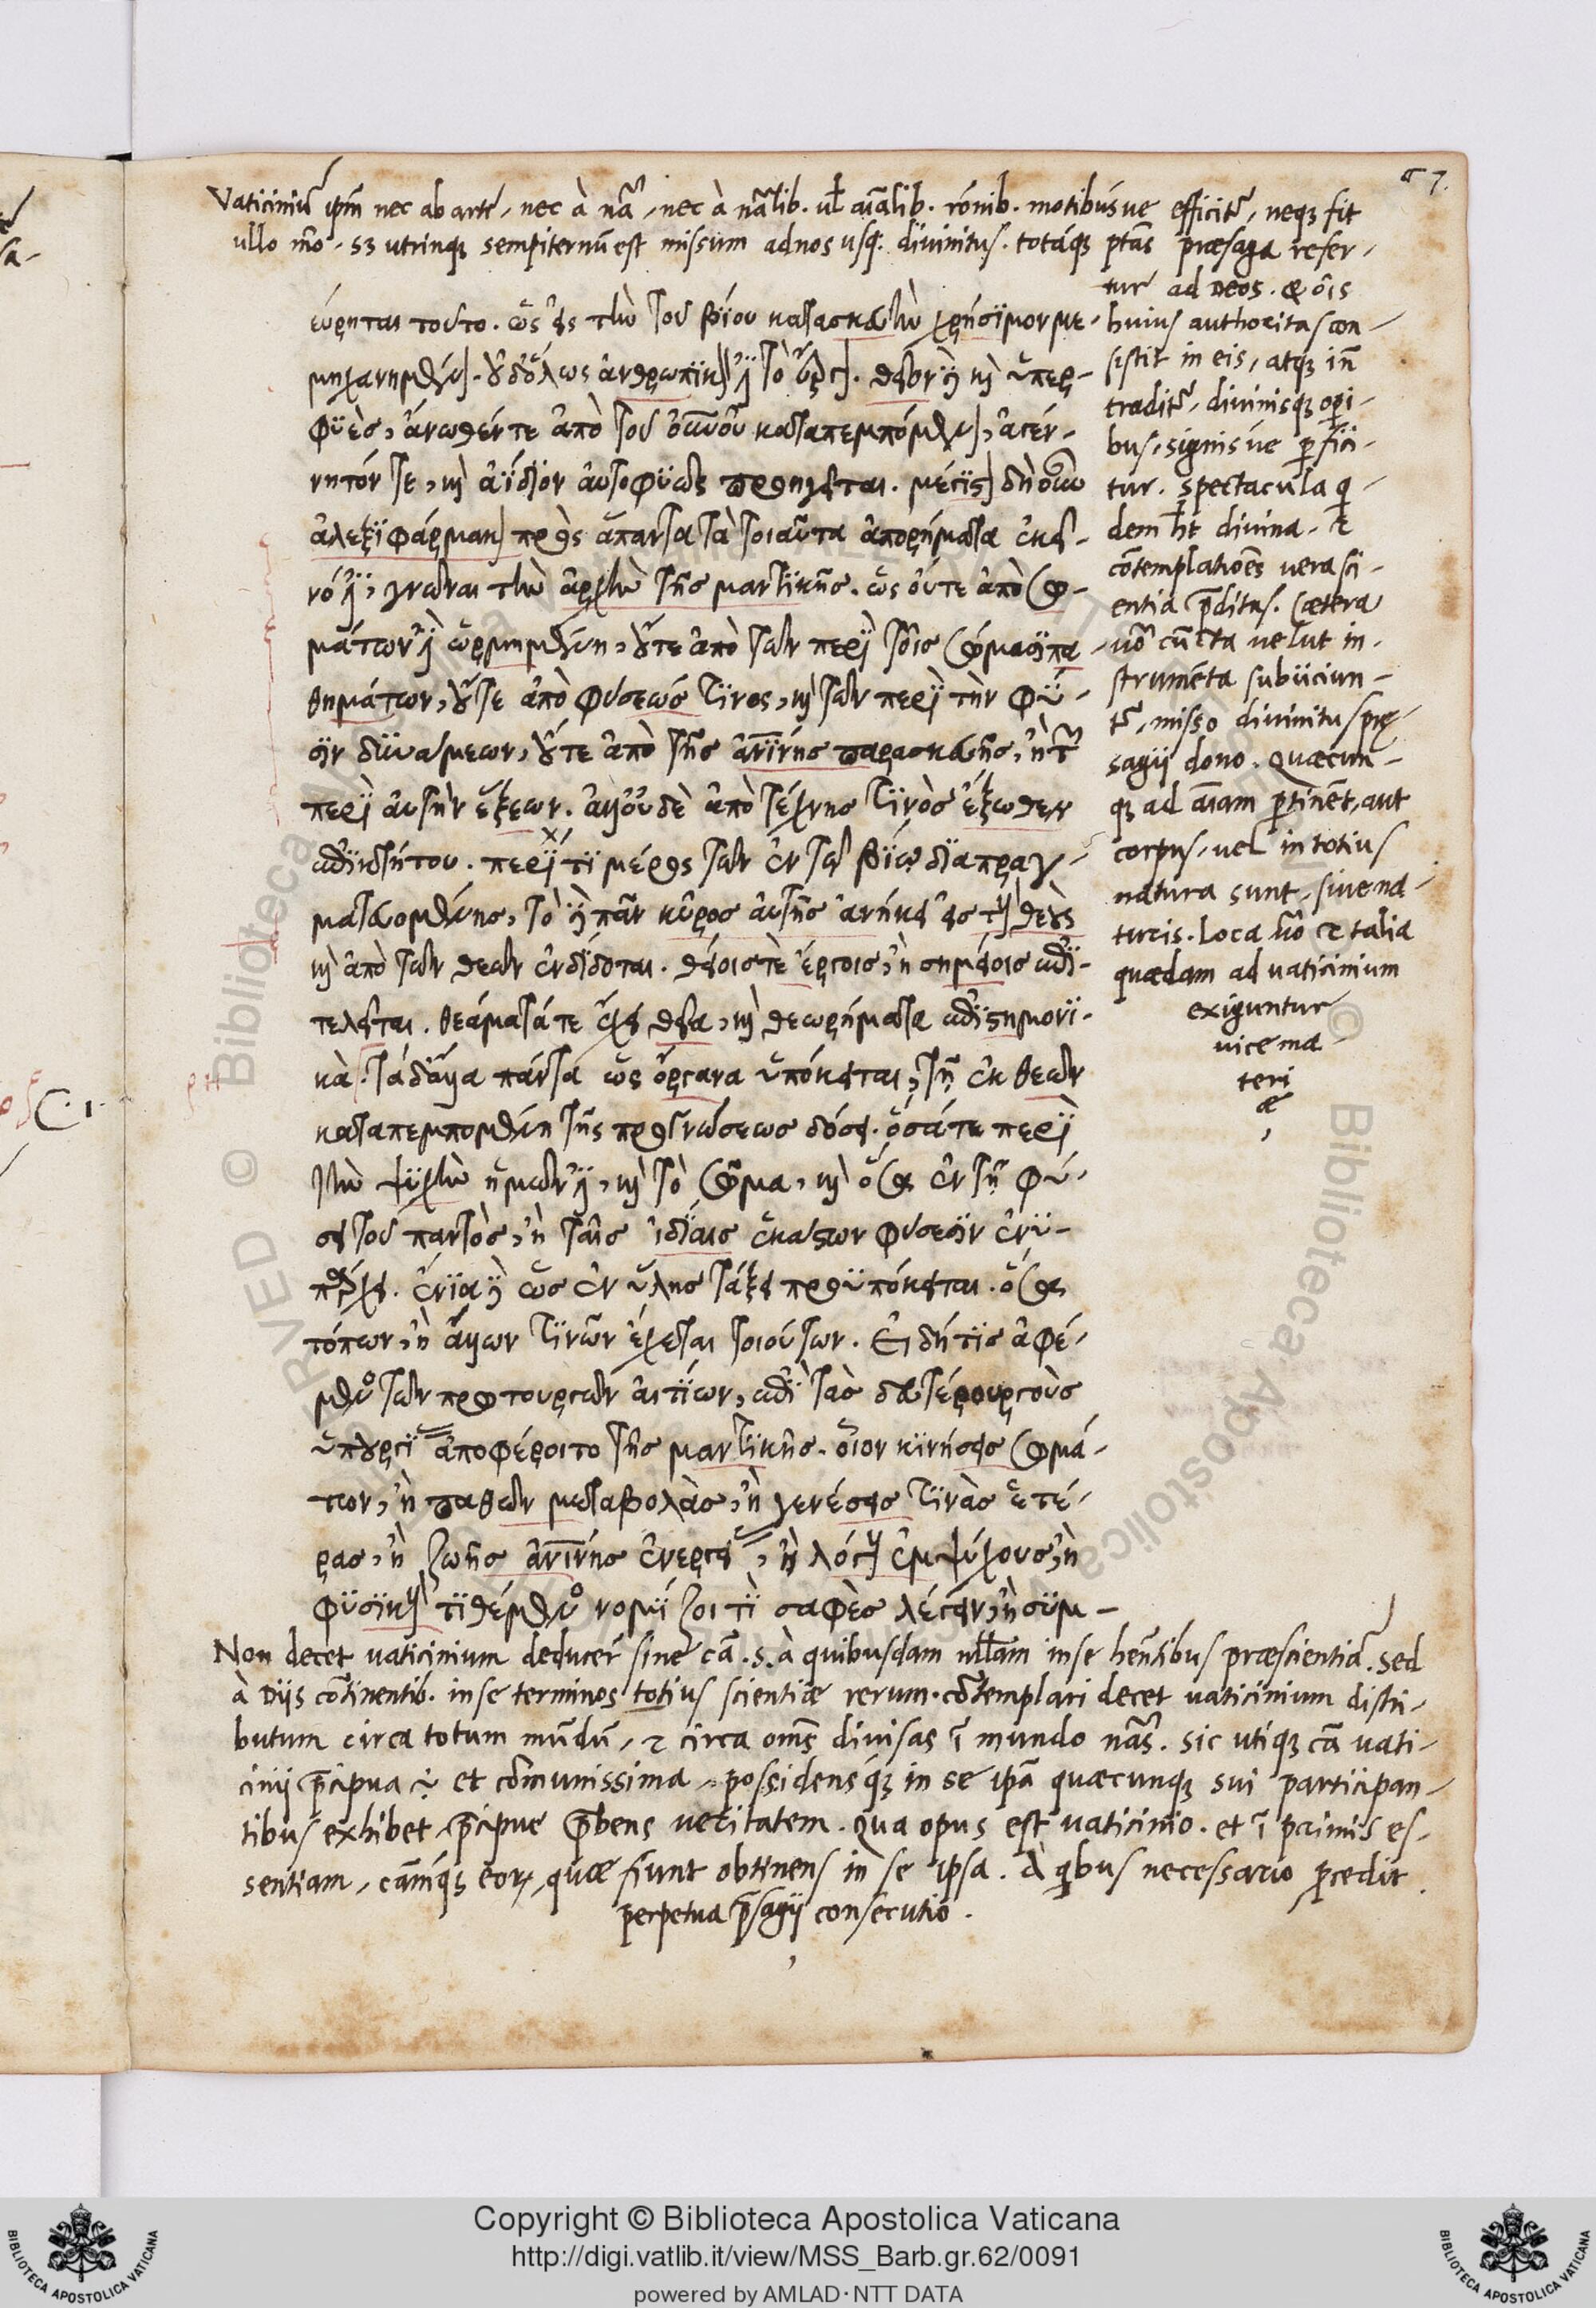 57.
Vaticiniū ipm̄ nec ab arte, nec à nā, nec à nālib. ul āīalib. rōnib. motibúsue efficitr̄, neqȝ fit
ullo mō, sȝ utrinqȝ sempiternū est missum ad nos usqȝ divinitus. totáqȝ ptās præsaga refer-
tur ad Deos. & ōis
huius authoritas con-
sistit in eis, atqȝ iñ
traditr̄, divinisqȝ opi-
bus, signisúe perfici-
tur. spectacula q̨-
dem ht̄ divina, &
cōntemplatiōes vera sci-
entia p̄ditas. Cætera
uō cūcta uelut in-
strumēta subiiciun-
tr̄, misso divinitus præ-
sagii dono. Quæcun-
qȝ ad āīam pertinēt, aut
corpus, uel in totius
natura sunt, sive na-
turis. Loca uō & talia
quædam ad vaticinium
exiguntur
vice ma
teri
æ
εὕρηται τοῦτο. ὡς εἰς τὴν τοῦ βίου κατασκευὴν χρήσιμον με-
μηχανημένον. οὐδ' ὅλως ἀνθρωπικόν ἐστι τὸ ἔργον. θεῖον δὲ καὶ ὑπερ-
φυὲς, ἄνωθέν τε ἀπὸ τοῦ οὐρανοῦ καταπεμπόμενον, ἀγέν-
νητόν τε, καὶ ἀΐδιον αὐτοφυῶς προηγεῖται. μέγιστον δὴ οὖν
ἀλεξιφάρμακον πρὸς ἅπαντα τὰ τοιαῦτα ἀπορήματα ἐκεῖ-
νό ἐστι, γνῶναι τὴν ἀρχὴν τῆς μαντικῆς. ὡς οὔτε ἀπὸ σω-
μάτων ἐστὶ ὡρμημένη, οὔτε ἀπὸ τῶν περὶ τοῖς σώμασι πα-
θημάτων, οὔτε ἀπὸ φύσεώς τινος, καὶ τῶν περὶ τὴν φύ-
σιν δυνάμεων, οὔτε ἀπὸ τῆς ἀνίνης παρασκευῆς, ἢ τῶν
περὶ αὐτὴν ἕξεων. ἀλλ' οὐδὲ ἀπὸ τέχνης τινὸς ἔξωθεν
ἐπικτήτου. περί τι μέρος τῶν ἐν τῷ βίῳ διαπραγ-
ματευομένης, τὸ δὲ πᾶν κῦρος αὐτῆς ἀνήκει εἰς τοὺς θεοὺς
καὶ ἀπὸ τῶν θεῶν ἐνδίδοται. θείοις τὲ ἔργοις, ἢ σημείοις ἐπι-
τελεῖται. θεάματά τε ἔχει θεῖα, καὶ θεωρήματα ἐπιστημονι-
κὰ. τὰ δ' ἄλλα πάντα ὡς ὄργανα ὑπόκειται, τῇ ἐκ θεῶν
καταπεμπομένῃ τῆς προγνώσεως δόσει. ὅσά τε περὶ
τὴν ψυχὴν ἡμῶν ἐστι, καὶ τὸ σῶμα, καὶ ὅσα ἐν τῇ φύ-
σει τοῦ παντὸς, ἢ ταῖς ἰδίαις ἑκάστων φύσεσιν ἐνυ-
πάρχει. ἔνια δὲ ὡς ἐν ὕλης τάξει προϋπόκειται. ὅσα
τόπων, ἢ ἄλλων τινῶν ἔχεται τοιούτων. Εἰ δή τις ἀφέ-
μενος τῶν πρωτουργῶν αἰτίων, ἐπὶ τὰς δευτέρουργοὺς
ὑπουργίας ἀποφέροιτο τῆς μαντικῆς. οἷον κινήσεις σωμά-
των, ἢ παθῶν μεταβολὰς, ἢ γενέσεις τινὰς ἑτέ-
ρας, ἢ ζωῆς ἀνίνης ἐνεργείας, ἢ λόγους ἐμψύχους, ἢ
φυσικοὺς τιθέμενος νομίζοι τὶ σαφὲς λέγειν, ἢ συμ-
Non decet vaticinium deducere sine cā. s. à quibusdam nullam in se hēntibus præscientiā. sed
à Diis cōtinentib. in se terminos totius scientiæ rerum. cōtemplari decet vaticinium distri-
butum circa totum mūdū, & circa oms̄ divisas ī mundo nās. sic utiqȝ cā vati-
cinii p̄cipua ē et cōmunissima, possidensqȝ in se ipā quæcunqȝ sui participan-
tibus exhibet, p̄cipue p̄bens veritatem. qua opus est vaticinio. et ī primis es-
sentiam, cāmqȝ eorȝ, quæ fiunt obtinens in se ipsa. à q̨bus necessario p̄cedit
perpetua p̄sagii consecutio.
Copyright © Biblioteca Apostolica Vaticana
http://digi.vatlib.it/view/MSS_Barb.gr.62/0091
powered by AMLAD·NTT DATA
BIBLIOTECA APOSTOLICA VATICANA
BIBLIOTECA APOSTOLICA VATICANA